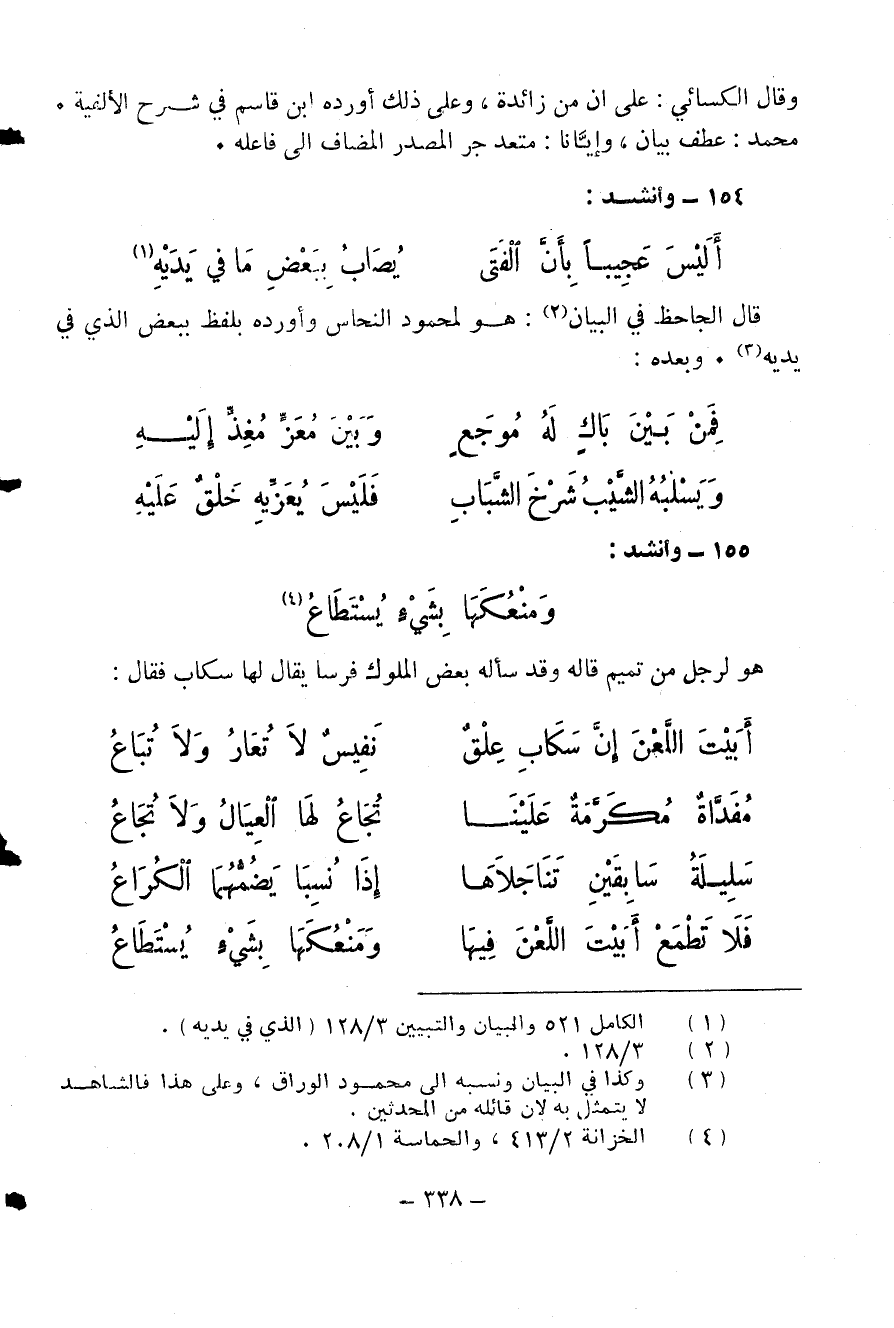 وقال الكسائي : على ان من زائدة ، وعلى ذلك أورده ابن قاسم في شرح الألفية .
محمد : عطف بيان ، وإيَّانا : متعد جر المصدر المضاف الى فاعله .
١٥٤ – وأنشد :
أَلَيْسَ عَجِيباً بِأَنَّ الْفَتَى يُصَابُ بِبَعْضِ مَا في يَدَيْهِ(١)
قال الجاحظ في البيان(٢) : هو لمحمود النحاس وأورده بلفظ ببعض الذي في
يديه(٣) . وبعده :
فَمِنْ بَيْنَ بَاكٍ لَهُ مُوجَعٍ وَبَيْنَ مُعَزٍّ مُغِذٍّ إِلَيْهِ
وَيَسْلُبُهُ الشَّيْبُ شَرْخَ الشَّبَابِ فَلَيْسَ يُعَزِّيهِ خَلْقٌ عَلَيْهِ
١٥٥ – وأنشد :
وَمَنْعُكَهَا بِشَيْءٍ يُسْتَطَاعُ(٤)
هو لرجل من تميم قاله وقد سأله بعض الملوك فرسا يقال لها سكاب فقال :
أَبَيْتَ اللَّعْنَ إِنَّ سَكَابِ عِلْقٌ نَفِيسٌ لاَ تُعَارُ وَلاَ تُبَاعُ
مُفَدَّاةٌ مُكَرَّمَةٌ عَلَيْنَا تُجَاعُ لَهَا الْعِيَالُ وَلاَ تُجَاعُ
سَلِيلَةُ سَابِقَيْنِ تَنَاجَلاَهَا إِذَا نُسِبَا يَضُمُّهُمَا الْكُرَاعُ
فَلَا تَطْمَعْ أَبَيْتَ اللَّعْنَ فِيهَا وَمَنْعُكَهَا بِشَيْءٍ يُسْتَطَاعُ
(١) الكامل ٥٢١ والبيان والتبيين ١٢٨/٣ (الذي في يديه) .
(٢) ١٢٨/٣ .
(٣) وكذا في البيان ونسبه الى محمود الوراق ، وعلى هذا فالشاهد
لا يتمثل به لان قائله من المحدثين .
(٤) الخزانة ٤١٣/٢ ، والحماسة ٢٠٨/١ .
– ٣٣٨ –